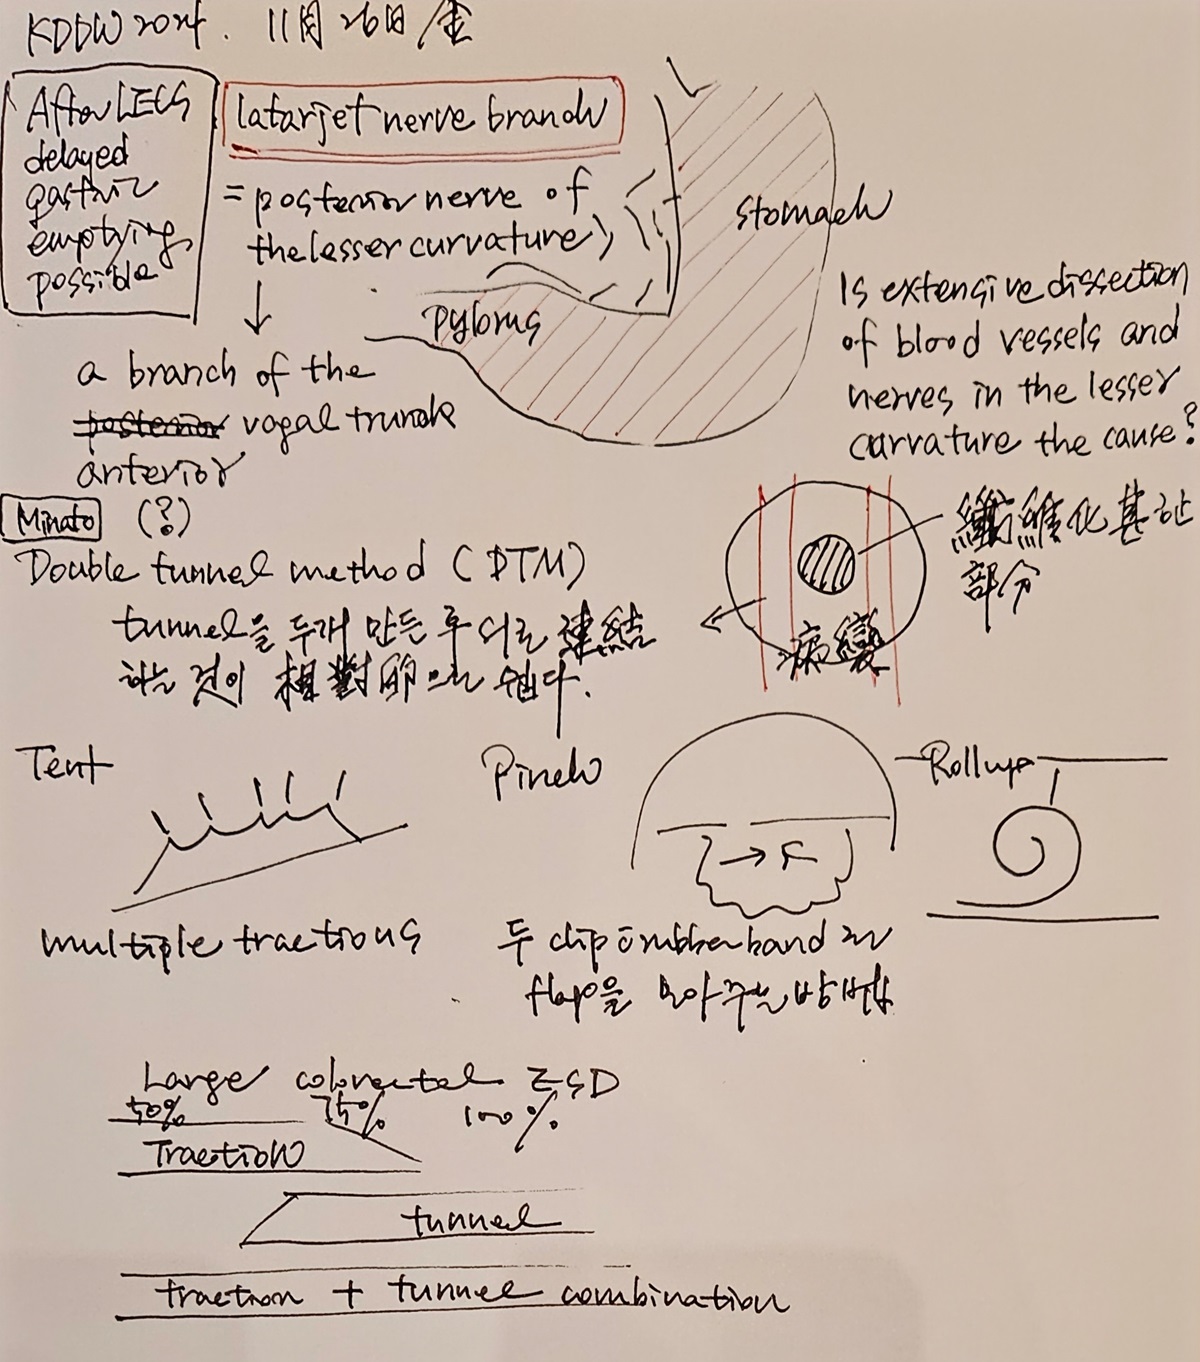 KDDW 2024. 11月 26日/金
After LECS
delayed
gastric
emptying
possible
latarjet nerve branch
= posterior nerve of
the lesser curvature)
↓
a branch of the
posterior vagal trunk
anterior
L
stomach
pylorus
Is extensive dissection
of blood vessels and
nerves in the lesser
curvature the cause?
Minato (?)
Double tunnel method (DTM)
tunnel을 두개 만든 후 서로 連結
하는 것이 相對 으로 쉽다.
纖維化
部分
病變
Tent
multiple tractions
Pinch
두 clip rubber band
flap을 모아주는 방법
Rollup
Large colorectal ESD
50% 75% 100%
Traction
tunnel
traction + tunnel combination